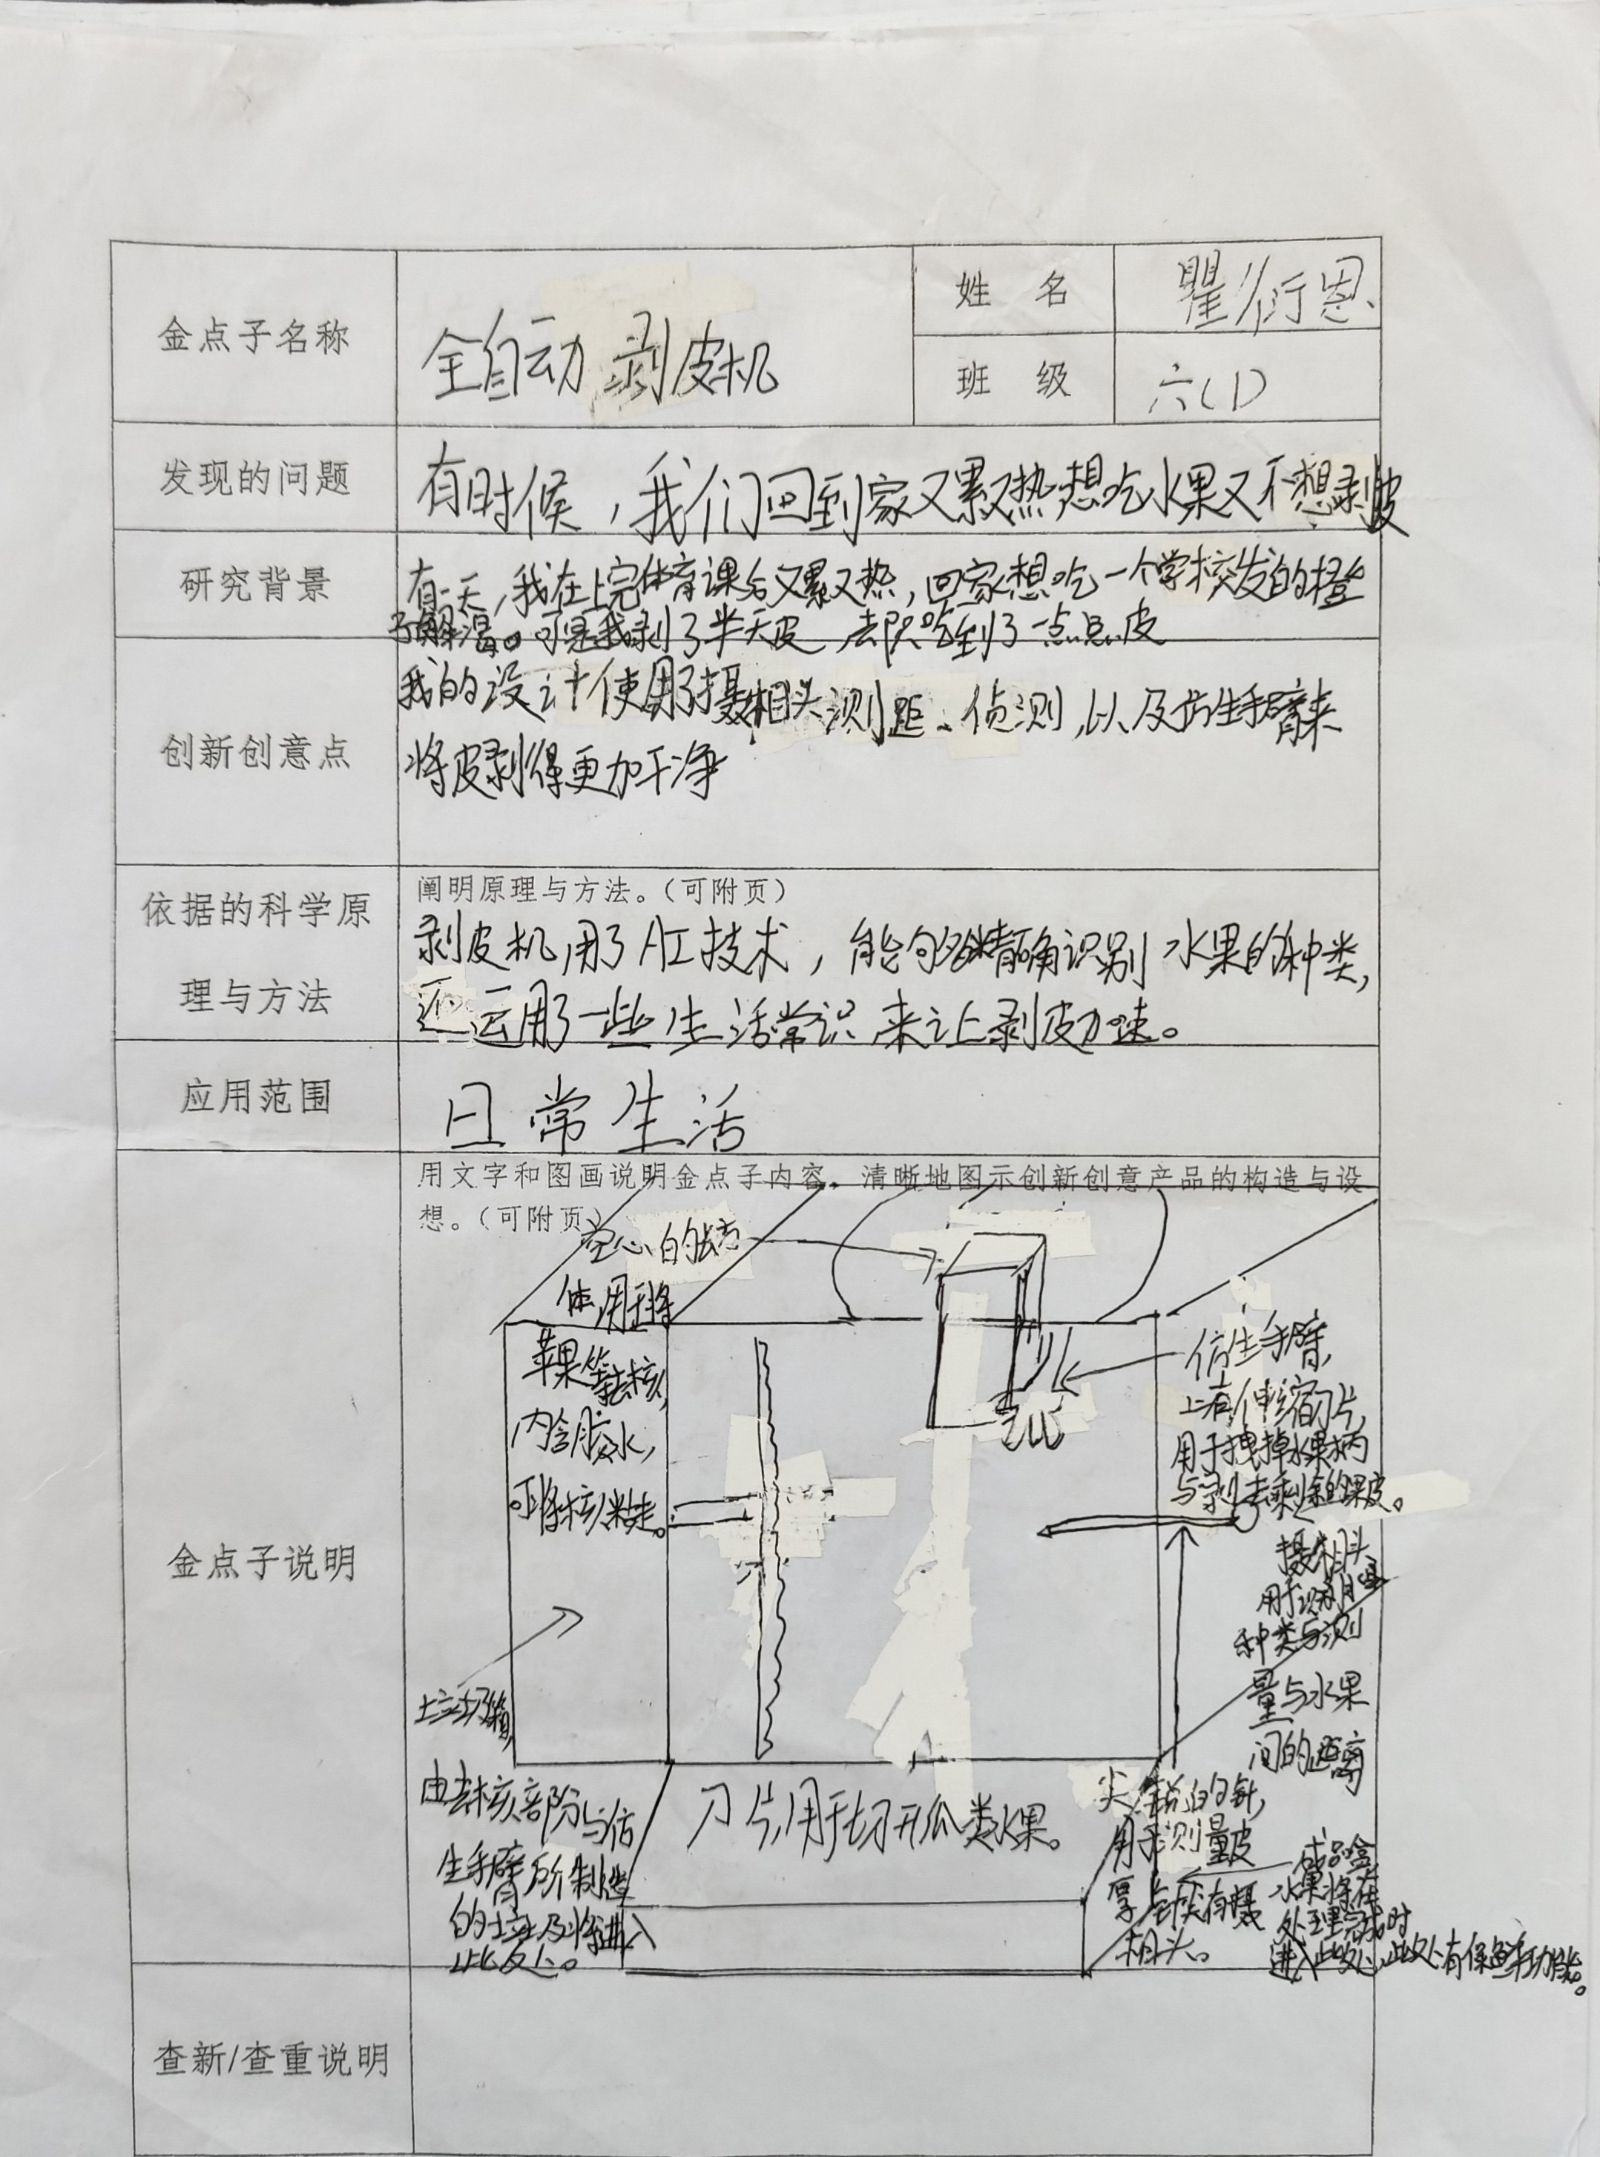 金点子名称
全自动剥皮机
姓 名
瞿衍恩
班 级
六(1)
发现的问题
有时候，我们回到家又累又热想吃水果又不想剥皮
研究背景
有一天，我在上完体育课后又累又热，回家想吃一个学校发的橙
子解渴。可是我剥了半天皮 去只吃到了一点点皮
创新创意点
我的设计使用了摄相头测距、侦测，以及仿生手臂来
将皮剥得更加干净
依据的科学原
理与方法
阐明原理与方法。（可附页）
剥皮机用了AI技术，能够精确识别水果的种类，
还运用了一些生活常识来让剥皮加速。
应用范围
日常生活
金点子说明
用文字和图画说明金点子内容，清晰地图示创新创意产品的构造与设
想。（可附页）
空心的长方
体，用于将
苹果等去核，
内含胶水，
可将核粘走。
仿生手臂，
上有伸缩刀片，
用于拽掉水果柄
与剥去剩余的果皮。
摄相头
用于识别
种类与测
量与水果
间的距离
垃圾箱，
由去核部分与仿
生手臂所制造
的垃圾将进入
此处。
刀片，用于切开瓜类水果。
尖锐的针，
用于测量皮
厚
相头。
成品盒
水果将在
处理完成时
进入此处，此处有保鲜功能。
查新/查重说明